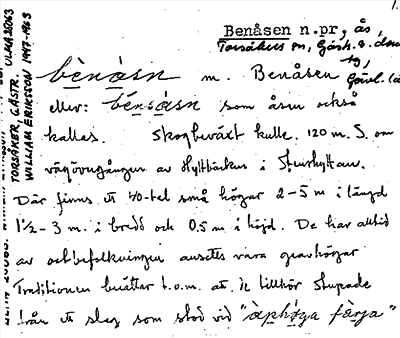 1.
Benåsen n.pr, ås,
Torsåkers sn, Gästr. ö. doms
tg, Gävl. län
TORSÅKER, GÄSTR. ULMA 26063
WILLIAM ERIKSSON 1947-1963
bènàsn m. Benåsen
eller: bénsàsn som åsen också
kallas. Skogbeväxt kulle. 120 m. S. om
vägövergången av Hyttbäcken i Stenshyttan.
Där finns ett 40-tal små högar 2-5 m i längd
1½-3 m. i bredd och 0.5 m i höjd. De har alltid
av ortbefolkningen ansetts vara gravhögar
Traditionen berättar t.o.m. att de tillhör stupade
från ett slag som stod vid "àphǿga fàrja"